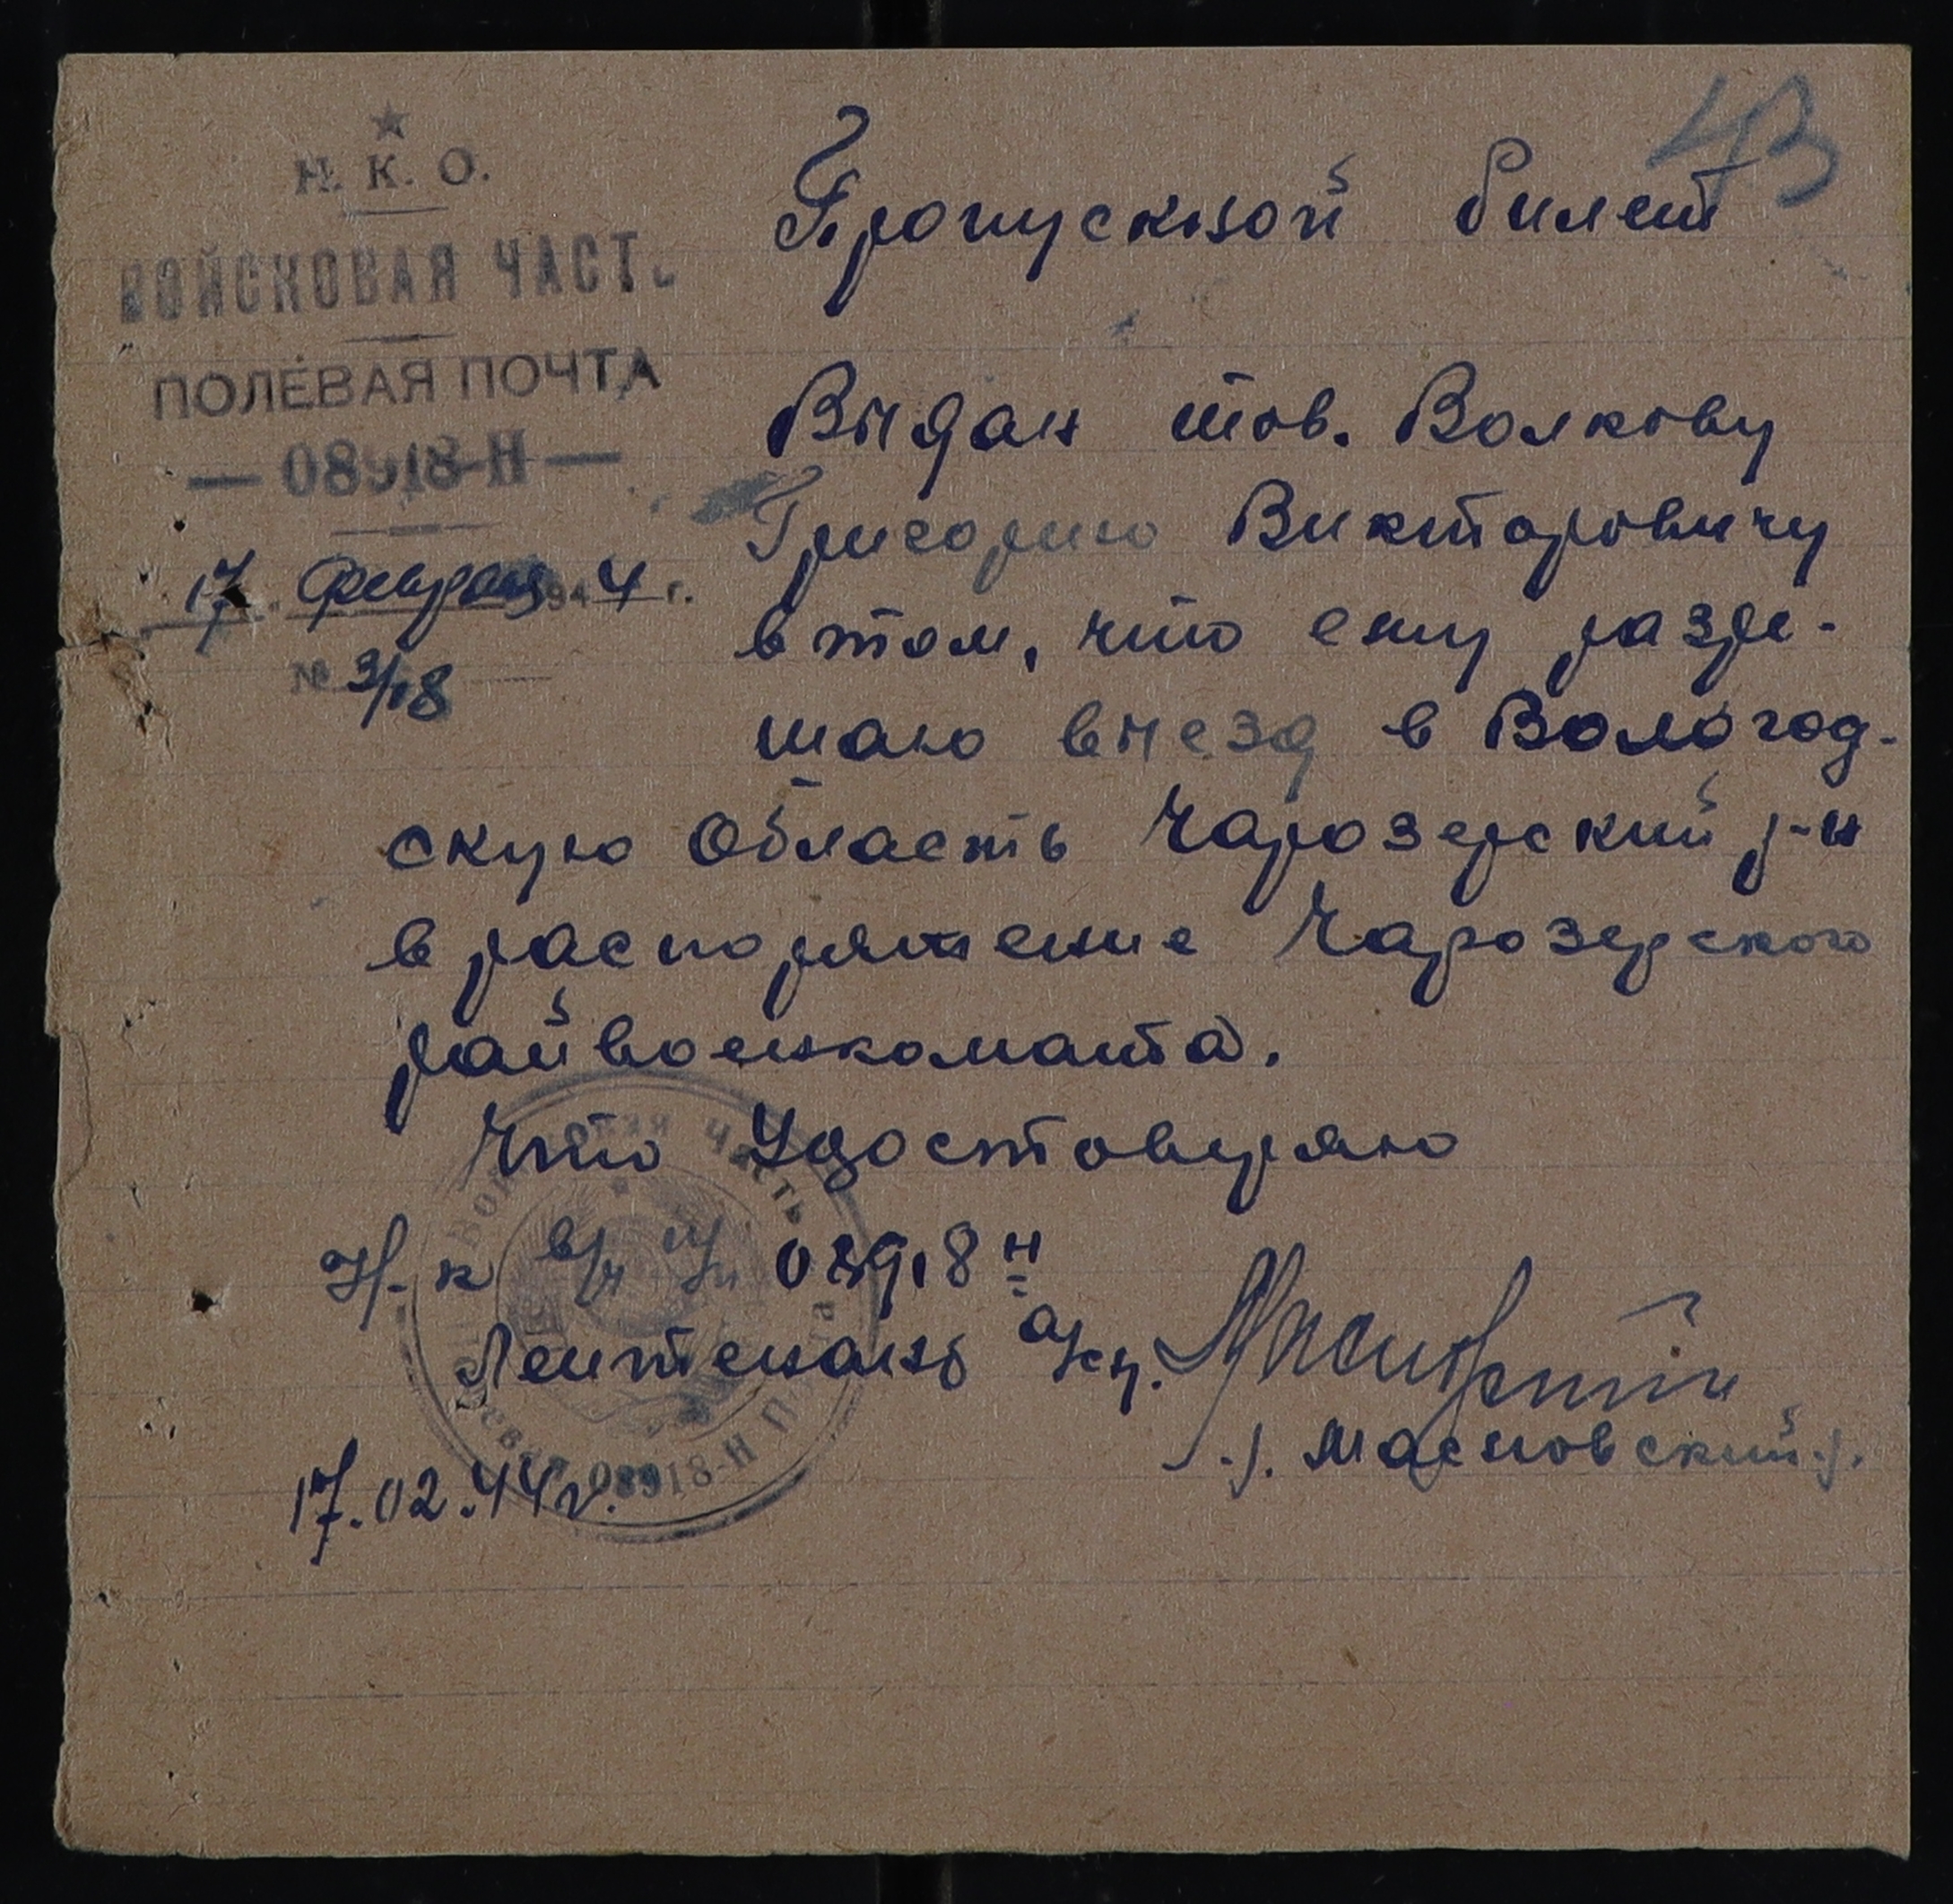 43
Н. К. О.
ВОЙСКОВАЯ ЧАСТЬ
ПОЛЕВАЯ ПОЧТА
— 08918-Н —
17 февраля 1944 г.
№ 3/18
Пропускной билет
Выдан тов. Волкову
Григорию Викторовичу
в том, что ему разре-
шаю выезд в Вологод-
скую область Чарозерский р-н
в распоряжение Чарозерского
райвоенкомата.
Что удостоверяю
Н-к в/ч п/п 08918 Н
Лейтенант а/сл.
/Масловский/.
17.02.44 г.
Войсковая часть
Полевая почта
08918-Н